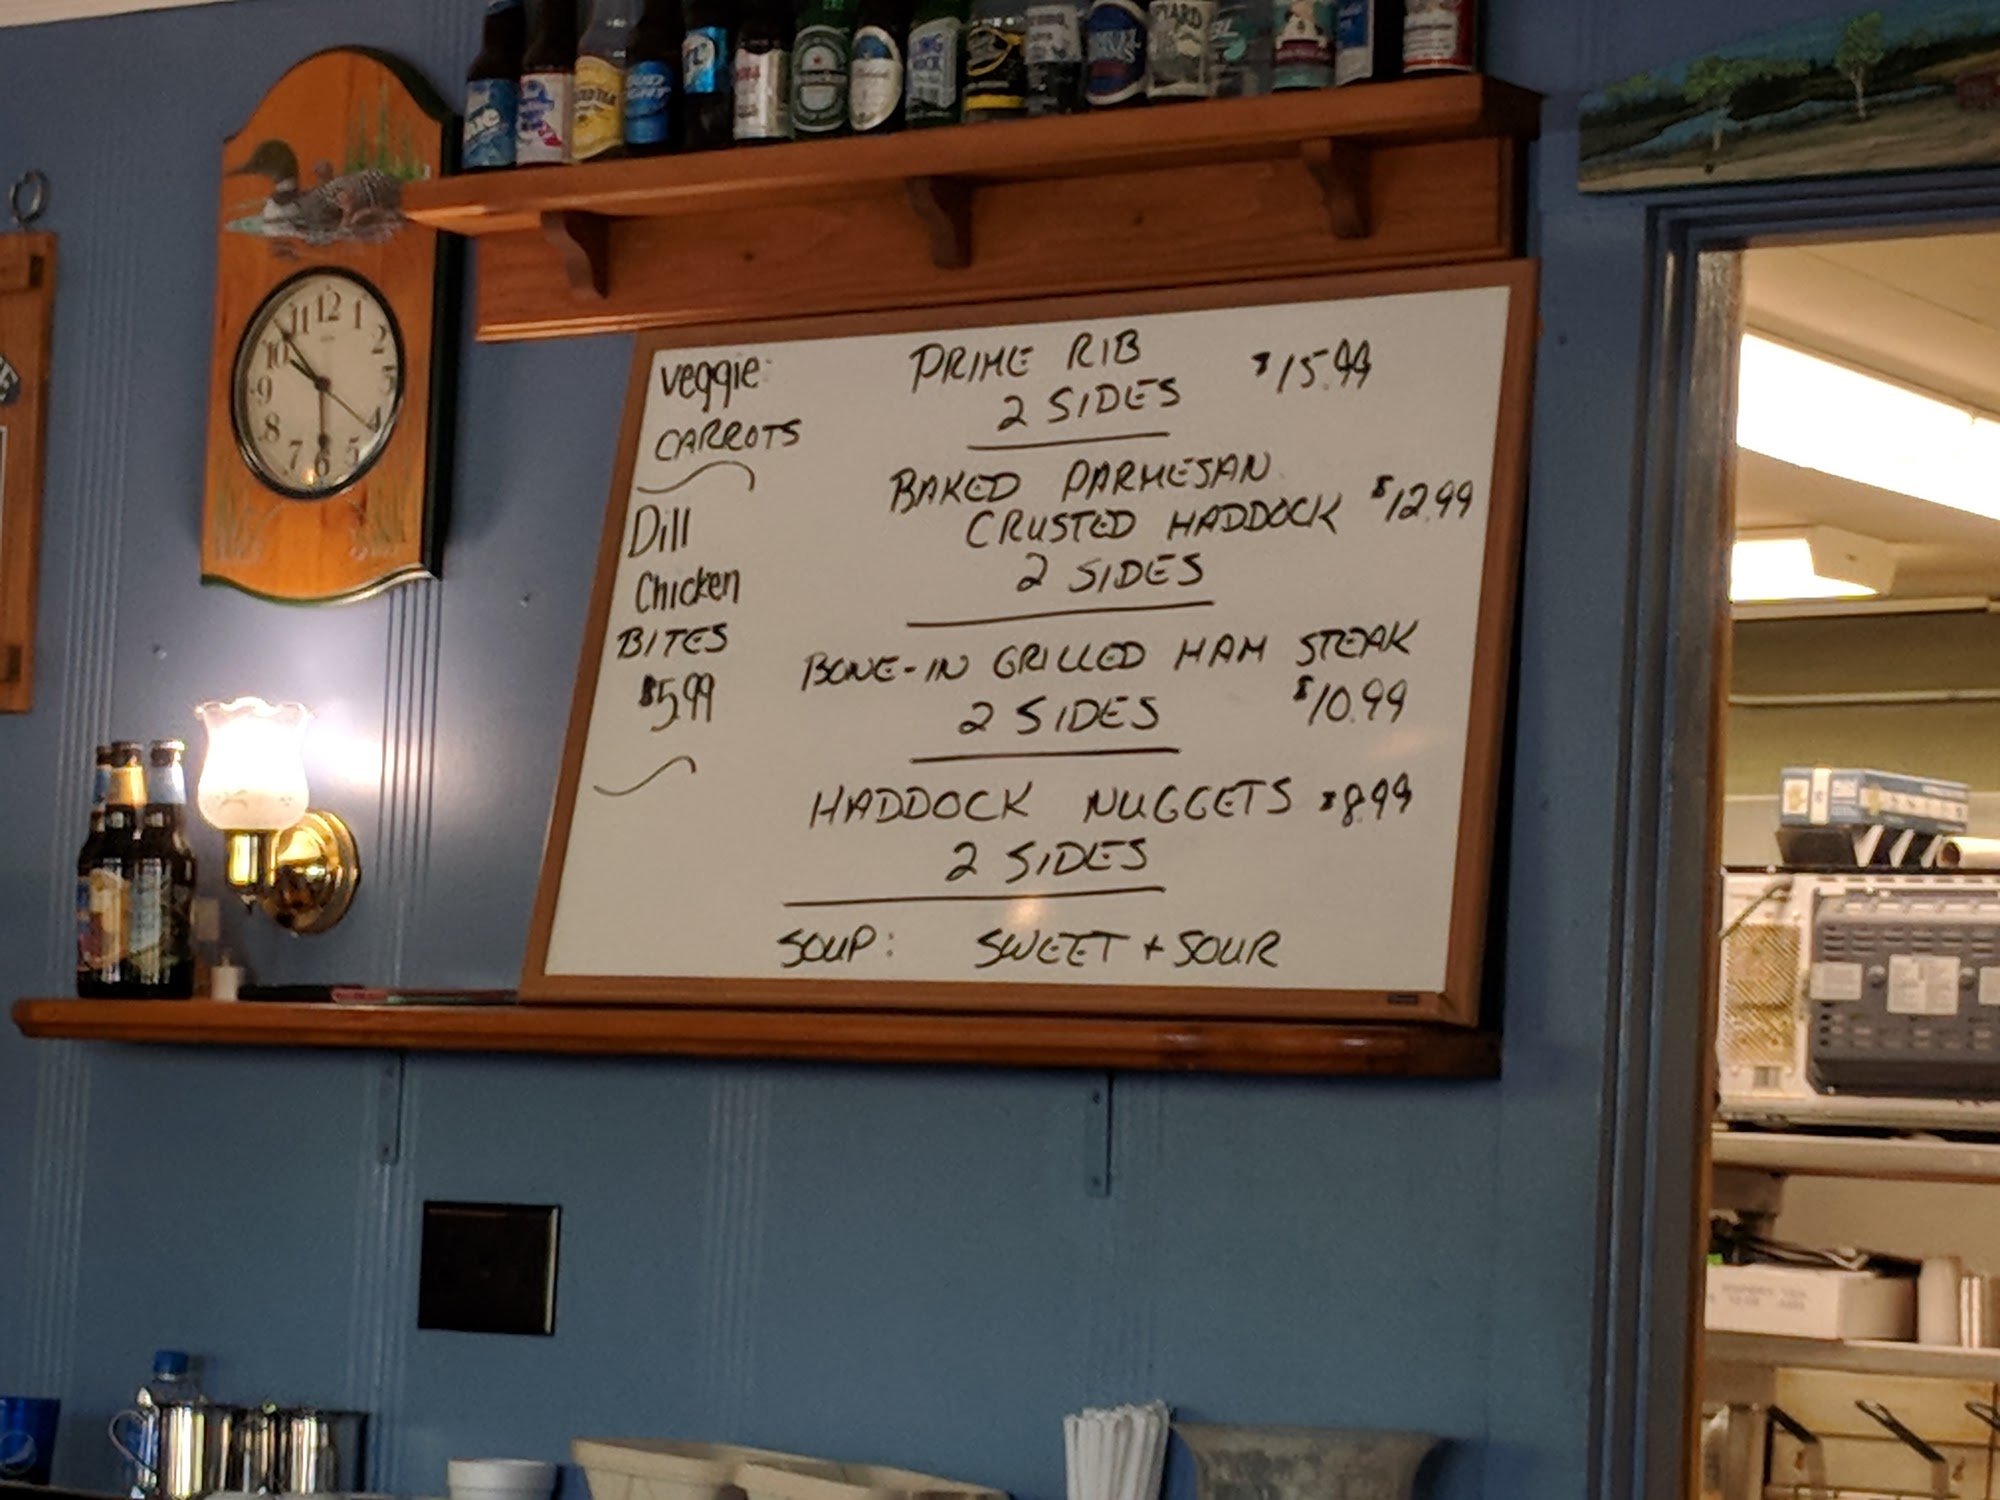 veggie:
CARROTS
Dill
Chicken
BITES
$5.99
PRIME RIB
2 SIDES $15.99
BAKED PARMESAN
CRUSTED HADDOCK $12.99
2 SIDES
BONE-IN GRILLED HAM STEAK
2 SIDES $10.99
HADDOCK NUGGETS $8.99
2 SIDES
SOUP: SWEET + SOUR
12
1
2
3
4
5
6
7
8
9
10
11